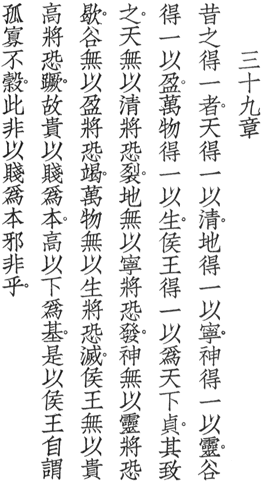 三十九章
昔之得一者。天得一以清。地得一以寧。神得一以靈。谷
得一以盈。萬物得一以生。侯王得一以為天下貞。其致
之。天無以清將恐裂。地無以寧將恐發。神無以靈將恐
歇。谷無以盈將恐竭。萬物無以生將恐滅。侯王無以貴
高將恐蹶。故貴以賤為本。高以下為基。是以侯王自謂
孤寡不穀。此非以賤為本邪非乎。